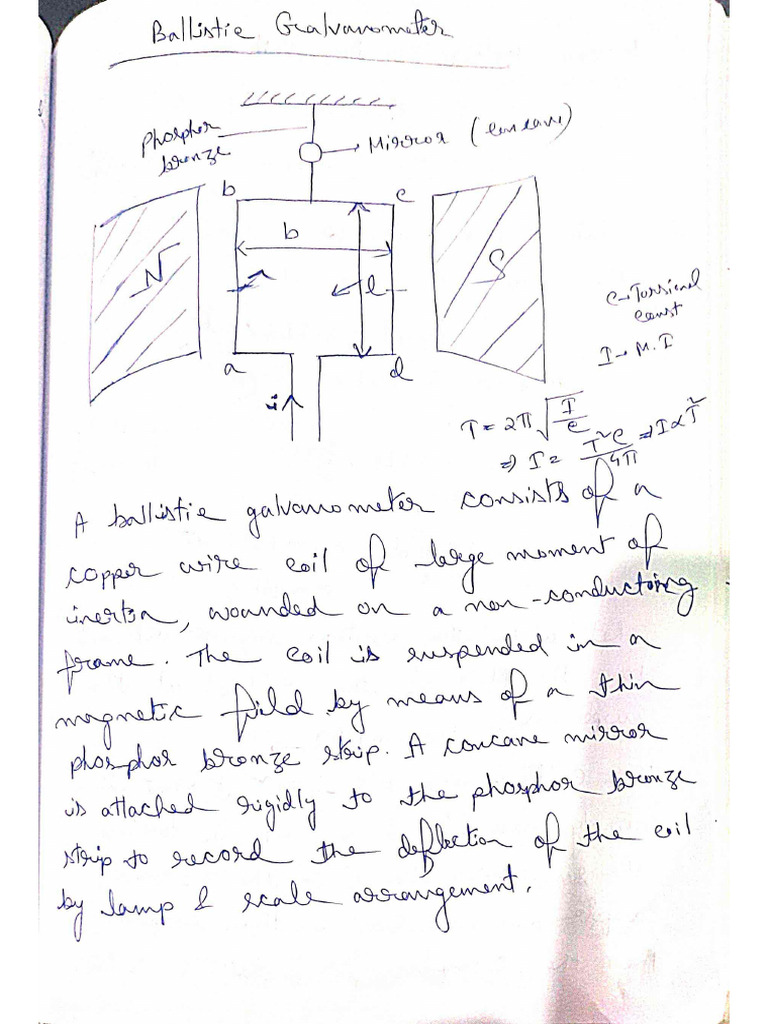 Ballistic Galvanometer
Phosphor
bronze
Mirror (concave)
b
c
b
N
S
l
a
d
i
c → Torsional
const
I → M.I
T = 2π√(I/c)
⇒ I = T²c/4π ⇒ I ∝ T²
A ballistic galvanometer consists of a
copper wire coil of large moment of
inertia, wounded on a non-conductoring
frame. The coil is suspended in a
magnetic feild by means of a thin
phosphor bronze strip. A concave mirror
is attached rigidly to the phosphor bronze
strip to record the deflection of the coil
by lamp & scale arrangement.